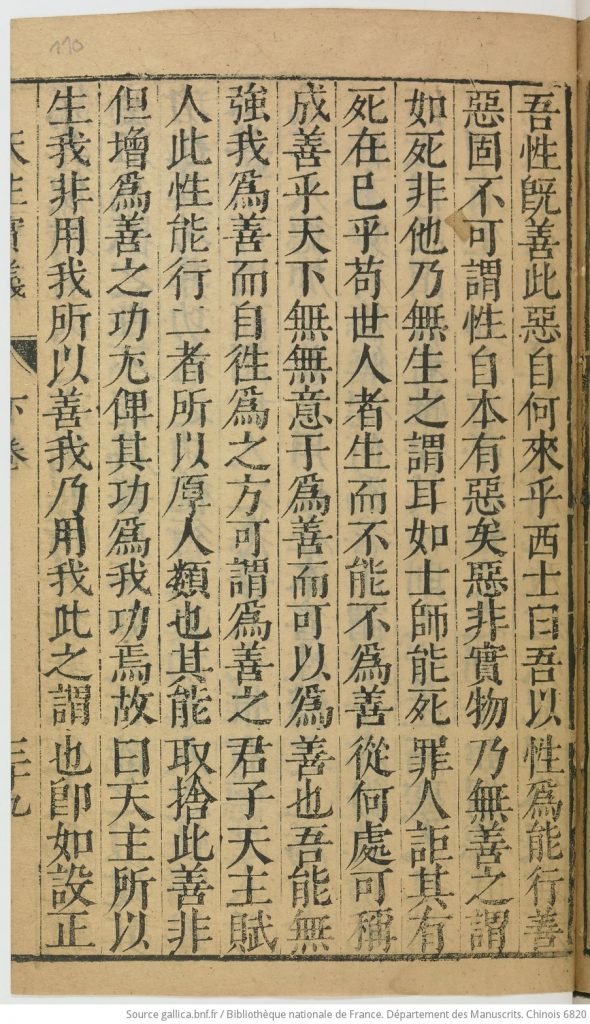 吾性旣善此惡自何來乎西士曰吾以性爲能行善
惡固不可謂性自本有惡矣惡非實物乃無善之謂
如死非他乃無生之謂耳如士師能死罪人詎其有
死在已乎苟世人者生而不能不爲善從何處可稱
成善乎天下無無意于爲善而可以爲善也吾能無
強我爲善而自徃爲之方可謂爲善之君子天主賦
人此性能行二者所以厚人類也其能取捨此善非
但增爲善之功尤俾其功爲我功焉故曰天主所以
生我非用我所以善我乃用我此之謂也卽如設正
天主實義
下卷
三十九
110
Source gallica.bnf.fr / Bibliothèque nationale de France. Département des Manuscrits. Chinois 6820